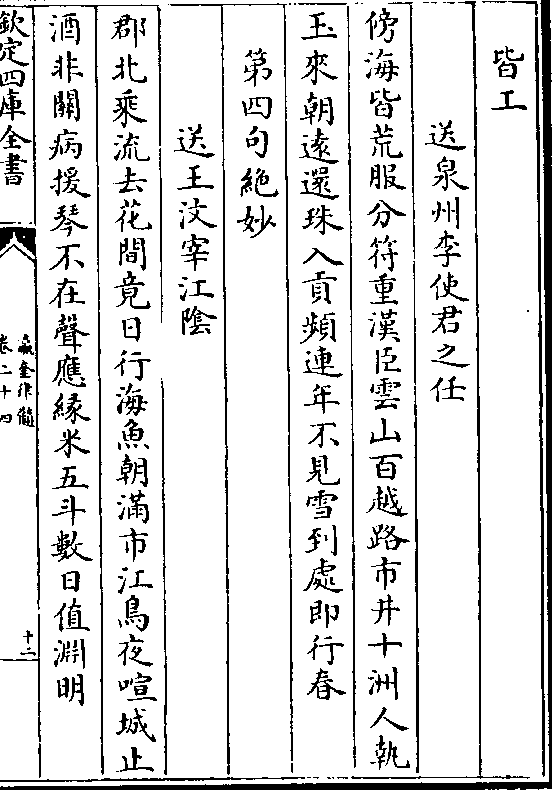 皆工
送泉州李使君之任
傍海皆荒服分符重漢臣雲山百越路市井十洲人執
玉來朝遠還珠入貢頻連年不見雪到處即行春
第四句絶妙
送王汶宰江隂
郡北乗流去花間竟日行海魚朝滿市江鳥夜喧城止
酒非關病援琴不在聲應緣米五斗數日值淵明
欽定四庫全書
瀛奎律髓
卷二十四
十二